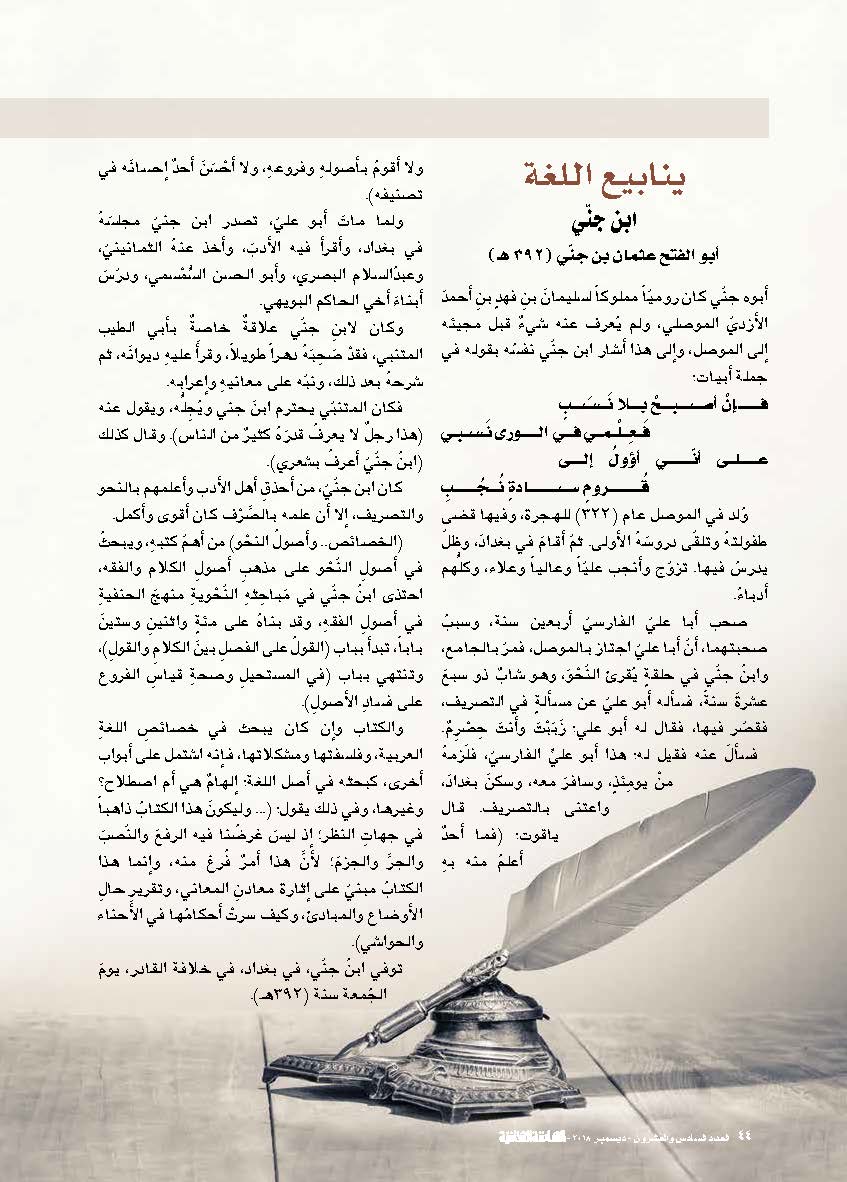 ينابيع اللغة
ابن جنّي
أبو الفتح عثمان بن جنّي (٣٩٢ هـ)
أبوه جنّي كان روميّاً مملوكاً لسليمانَ بنِ فهدِ بنِ أحمدَ
الأزديّ الموصلي، ولم يُعرف عنه شيءٌ قبل مجيئه
إلى الموصل، وإلى هذا أشار ابن جنّي نفسُه بقوله في
جملة أبيات:
فـــإنْ أصـــبـــحْ بـــلا نَـــسَـــبٍ
فَـعِـلْـمـي فـي الـــورى نَـسـبـي
عـــلـــى أنّـــــي أؤولُ إلـــى
قُـــــرومٍ ســــــادةٍ نُـــجُـــبِ
وُلد في الموصل عام (٣٢٢) للهجرة، وفيها قضى
طفولتهُ وتلقّى دروسَهُ الأولى. ثمّ أقامَ في بغدادَ، وظلّ
يدرسُ فيها. تزوّج وأنجب عليّاً وعالياً وعلاء، وكلُّهم
أدباءُ.
صحب أبا عليّ الفارسيّ أربعين سنة، وسببُ
صحبتهما، أنّ أبا عليّ اجتاز بالموصل، فمرّ بالجامع،
وابنُ جنّي في حلقةٍ يُقرئ النّحوَ، وهو شابٌ ذو سبعَ
عشرةَ سنةً، فسأله أبو عليّ عن مسألةٍ في التصريف،
فقصّر فيها، فقال له أبو علي: زَبَبْتَ وأنتَ حِصْرِمٌ.
فسألَ عنه فقيل له: هذا أبو عليٍّ الفارسيّ، فلَزمهُ
منْ يومئذٍ، وسافرَ معه، وسكنَ بغدادَ،
واعتنى بالتصريف. قال
ياقوت: (فما أحدٌ
أعلمُ منه بهِ
ولا أقومُ بأصولهِ وفروعهِ، ولا أحْسَنَ أحدٌ إحسانَه في
تصنيفه).
ولما ماتَ أبو عليّ، تصدر ابن جنيّ مجلسَهُ
في بغداد، وأقرأ فيه الأدبَ، وأخذ عنهُ الثمانينيّ،
وعبدُالسلام البصري، وأبو الحسن السُّمْسمي، ودرّسَ
أبناءَ أخي الحاكم البويهي.
وكان لابنِ جنّي علاقةٌ خاصةٌ بأبي الطيب
المتنبي، فقدْ صَحِبَهُ دهراً طويلاً، وقرأَ عليهِ ديوانَه، ثم
شرحهُ بعد ذلك، ونبّه على معانيهِ وإعرابِه.
فكان المتنبّي يحترم ابنَ جني ويُجِلُّه، ويقول عنه
(هذا رجلٌ لا يعرفُ قدرَهُ كثيرٌ من الناس). وقال كذلك
(ابنُ جنّيْ أعرفُ بشعري).
كان ابن جنّيّ، من أحذقِ أهل الأدب وأعلمهم بالنحو
والتصريف، إلا أن علمه بالصَّرْف كان أقوى وأكمل.
(الخصائص.. وأصولُ النحْو) من أهمّ كتبهِ، ويبحثُ
في أصولِ النّحْو على مذهبِ أصولِ الكلام والفقه،
احتذى ابنُ جنّي في مَباحثِهِ النّحْويةِ منهجَ الحنفيةِ
في أصولِ الفقهِ، وقد بناهُ على مئةٍ واثنينِ وستينَ
باباً، تبدأ بباب (القولُ على الفصلِ بينَ الكلامِ والقولِ)،
وتنتهي بباب (في المستحيلِ وصحةِ قياسِ الفروع
على فسادِ الأصولِ).
والكتاب وإن كان يبحث في خصائصِ اللغةِ
العربية، وفلسفتها ومشكلاتها، فإنه اشتمل على أبواب
أخرى، كبحثه في أصل اللغة: إلهامٌ هي أم اصطلاح؟
وغيرها، وفي ذلك يقول: (... وليكونَ هذا الكتابُ ذاهباً
في جهاتِ النظر؛ إذ ليسَ غرضُنا فيه الرفعَ والنّصبَ
والجرَّ والجزمَ؛ لأنَّ هذا أمرٌ فُرغ منه، وإنما هذا
الكتابُ مبنيّ على إثارة معادنِ المعاني، وتقريرِ حالِ
الأوضاع والمبادئ، وكيف سرتْ أحكامُها في الأحناء
والحواشي).
توفي ابنُ جنّي، في بغداد، في خلافة القادر، يومَ
الجُمعة سنة (٣٩٢هـ).
٤٤ العدد السادس والعشرون - ديسمبر ٢٠١٨ -